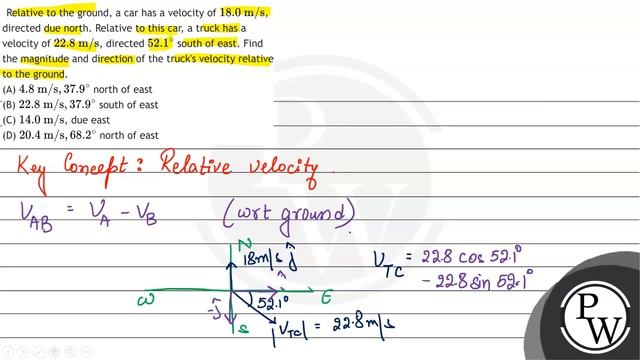 Relative to the ground, a car has a velocity of 18.0 m/s,
directed due north. Relative to this car, a truck has a
velocity of 22.8 m/s, directed 52.1° south of east. Find
the magnitude and direction of the truck's velocity relative
to the ground.
(A) 4.8 m/s, 37.9° north of east
(B) 22.8 m/s, 37.9° south of east
(C) 14.0 m/s, due east
(D) 20.4 m/s, 68.2° north of east
Key Concept : Relative velocity.
V_AB = V_A - V_B (wrt ground)
N
18 m/s ĵ
V_TC = 22.8 cos 52.1°
- 22.8 sin 52.1°
î
W
52.1°
E
-ĵ
S
|V_TC| = 22.8 m/s
P
W